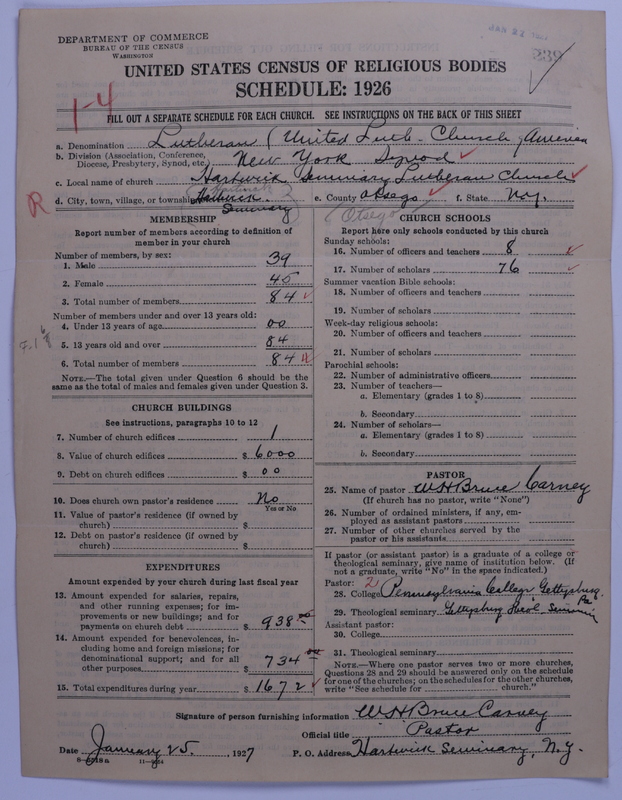 DEPARTMENT OF COMMERCE
BUREAU OF THE CENSUS
WASHINGTON
239
UNITED STATES CENSUS OF RELIGIOUS BODIES
SCHEDULE: 1926
1-4
FILL OUT A SEPARATE SCHEDULE FOR EACH CHURCH. SEE INSTRUCTIONS ON THE BACK OF THIS SHEET
a. Denomination Lutheran (United Luth. Church America
b. Division (Association, Conference, Diocese, Presbytery, Synod, etc.) New York Synod
c. Local name of church Hartwick Seminary Lutheran Church
R
d. City, town, village, or township Hartwick Seminary e. County Otsego f. State N.Y.
Otsego
MEMBERSHIP
Report number of members according to definition of
member in your church
Number of members, by sex:
1. Male 39
2. Female 45
3. Total number of members 84
Number of members under and over 13 years old:
4. Under 13 years of age 00
5. 13 years old and over 84
6. Total number of members 84
NOTE.—The total given under Question 6 should be the
same as the total of males and females given under Question 3.
CHURCH BUILDINGS
See instructions, paragraphs 10 to 12
7. Number of church edifices 1
8. Value of church edifices $ 6000
9. Debt on church edifices $ 00
10. Does church own pastor's residence No
Yes or No
11. Value of pastor's residence (if owned by
church) $
12. Debt on pastor's residence (if owned by
church) $
EXPENDITURES
Amount expended by your church during last fiscal year
13. Amount expended for salaries, repairs,
and other running expenses; for im-
provements or new buildings; and for
payments on church debt $ 938
14. Amount expended for benevolences, in-
cluding home and foreign missions; for
denominational support; and for all
other purposes $ 734 00
15. Total expenditures during year $ 1672
CHURCH SCHOOLS
Report here only schools conducted by this church
Sunday schools:
16. Number of officers and teachers 8
17. Number of scholars 76
Summer vacation Bible schools:
18. Number of officers and teachers
19. Number of scholars
Week-day religious schools:
20. Number of officers and teachers
21. Number of scholars
Parochial schools:
22. Number of administrative officers
23. Number of teachers—
a. Elementary (grades 1 to 8)
b. Secondary
24. Number of scholars—
a. Elementary (grades 1 to 8)
b. Secondary
PASTOR
25. Name of pastor W H Bruce Carney
(If church has no pastor, write "None")
26. Number of ordained ministers, if any, em-
ployed as assistant pastors
27. Number of other churches served by the
pastor or his assistants
If pastor (or assistant pastor) is a graduate of a college or
theological seminary, give name of institution below. (If
not a graduate, write "No" in the space indicated.)
Pastor: 2
28. College Pennsylvania College, Gettysburg, Pa
29. Theological seminary Gettysburg Theol Seminary
Assistant pastor:
30. College
31. Theological seminary
NOTE.—Where one pastor serves two or more churches,
Questions 28 and 29 should be answered only on the schedule
for one of the churches; on the schedules for the other churches,
write "See schedule for church."
Signature of person furnishing information W. H. Bruce Carney
Official title Pastor
Date January 25, 1927 P. O. Address Hartwick Seminary, N.Y.